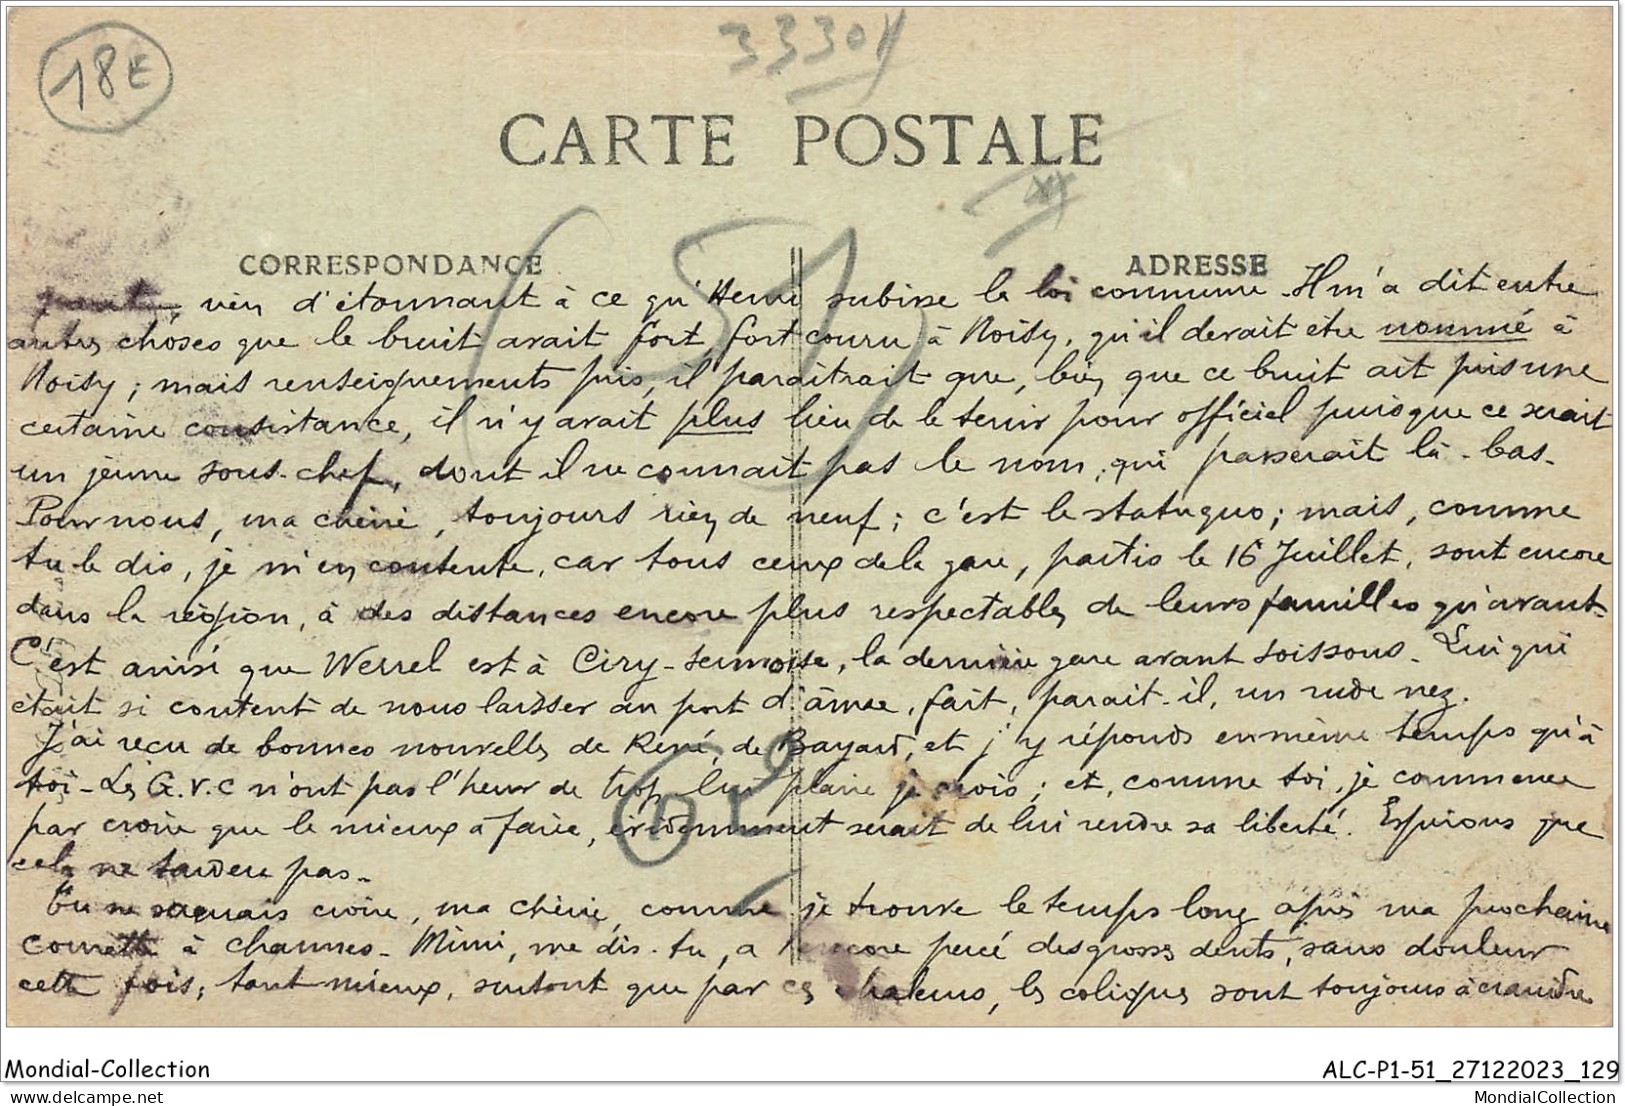 18€
3330
CARTE POSTALE
51
CORRESPONDANCE ADRESSE
rien d'étonnant à ce qu'Henri subisse la loi commune. Il m'a dit entre
autres choses que le bruit avait fort, fort couru à Noisy, qu'il devait être nommé à
Noisy; mais renseignements pris, il paraîtrait que, bien que ce bruit ait pris une
certaine consistance, il n'y avait plus lieu de le tenir pour officiel puisque ce serait
un jeune sous-chef, dont il ne connait pas le nom, qui passerait là-bas.
Pour nous, ma chérie, toujours rien de neuf; c'est le statuquo; mais, comme
tu le dis, je m'en contente, car tous ceux de la gare, partis le 16 Juillet, sont encore
dans la région, à des distances encore plus respectables de leurs familles qu'avant.
C'est ainsi que Werrel est à Ciry-Sermoise, la dernière gare avant Soissons. Lui qui
était si content de nous laisser au port d'âmes, fait, parait-il, un rude nez.
J'ai reçu de bonnes nouvelles de René, de Bayard, et j'y réponds en même temps qu'à
toi. Les G.V.C n'ont pas l'heur de trop lui plaire je crois; et, comme toi, je commence
par croire que le mieux à faire, évidemment serait de lui rendre sa liberté. Espérons que
cela ne tardera pas.
Tu ne saurais croire, ma chérie, comme je trouve le temps long après ma prochaine
à Channes. Mimi, me dis-tu, a encore percé des grosses dents, sans douleur
cette fois; tant mieux, surtout que par ces chaleurs, les coliques sont toujours à craindre
Mondial-Collection ALC-P1-51_27122023_129
delcampe.net MondialCollection